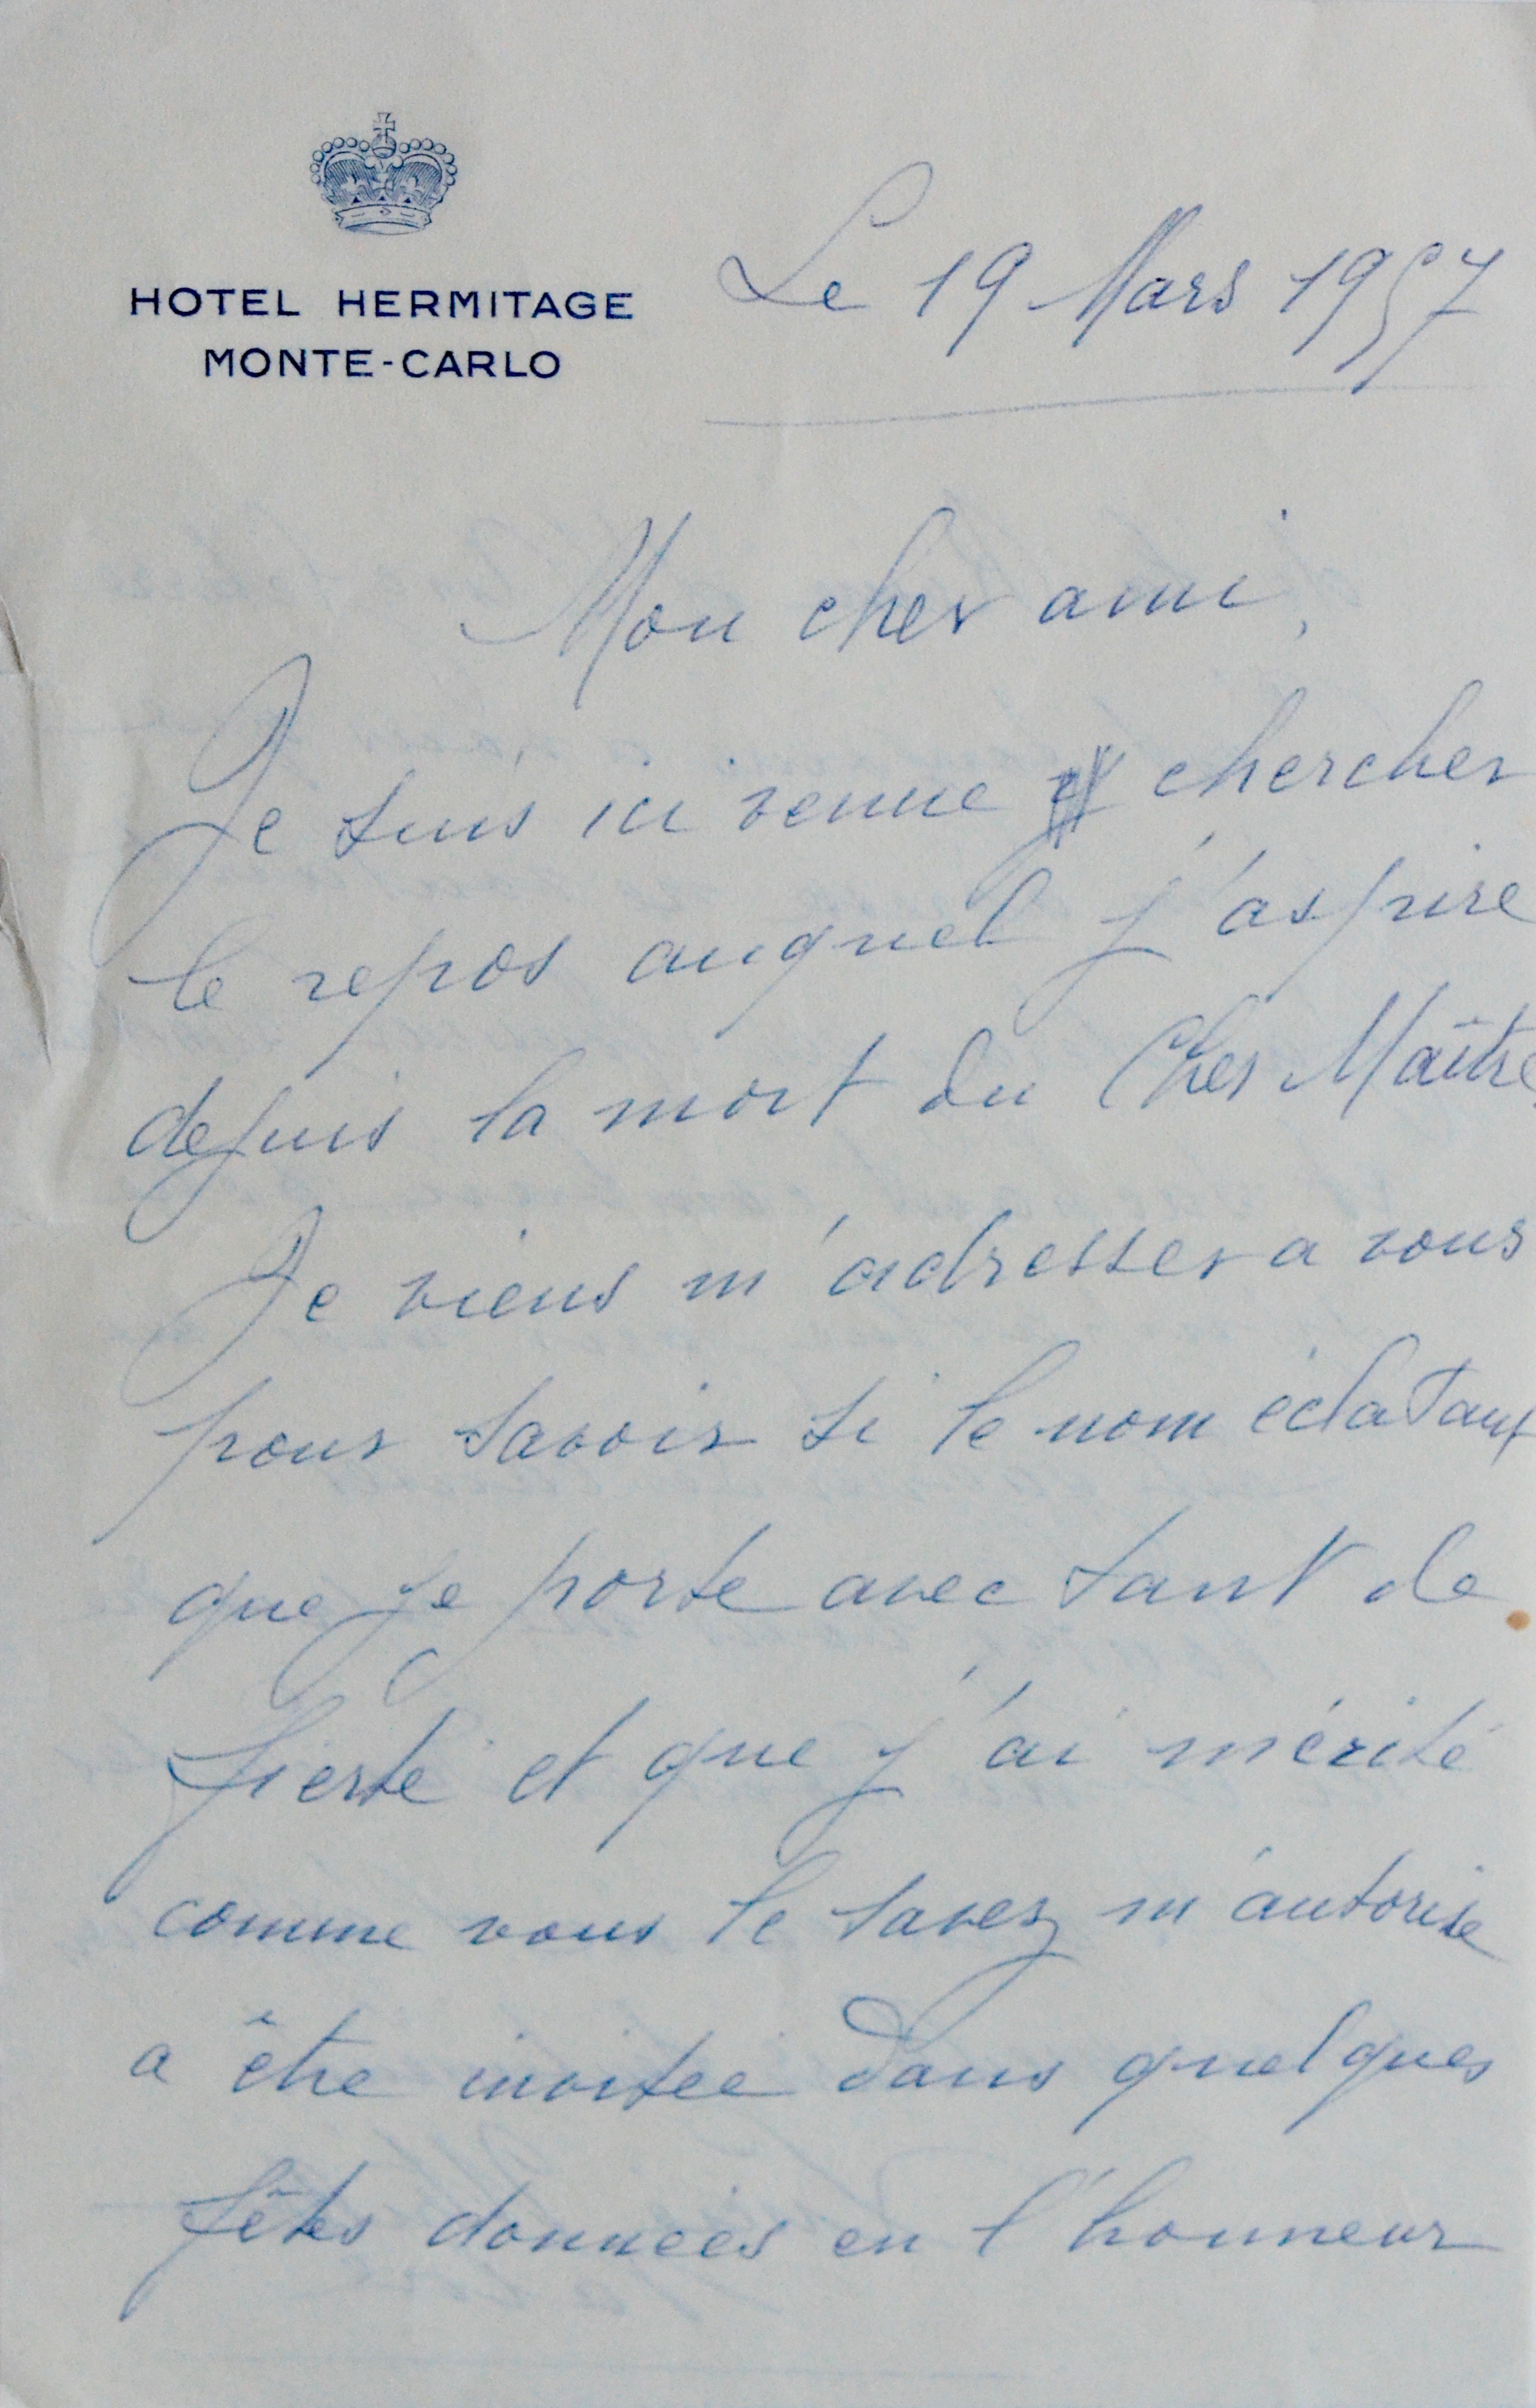 HOTEL HERMITAGE
MONTE-CARLO
Le 19 Mars 1957
Mon cher ami,
Je suis ici venue chercher
le repos auquel j'aspire
depuis la mort du Cher Maître.
Je viens m'adresser a vous
pour savoir si le nom éclatant
que je porte avec tant de
fierté et que j'ai mérité
comme vous le savez m'autorise
a être invitée dans quelques
fêtes données en l'honneur